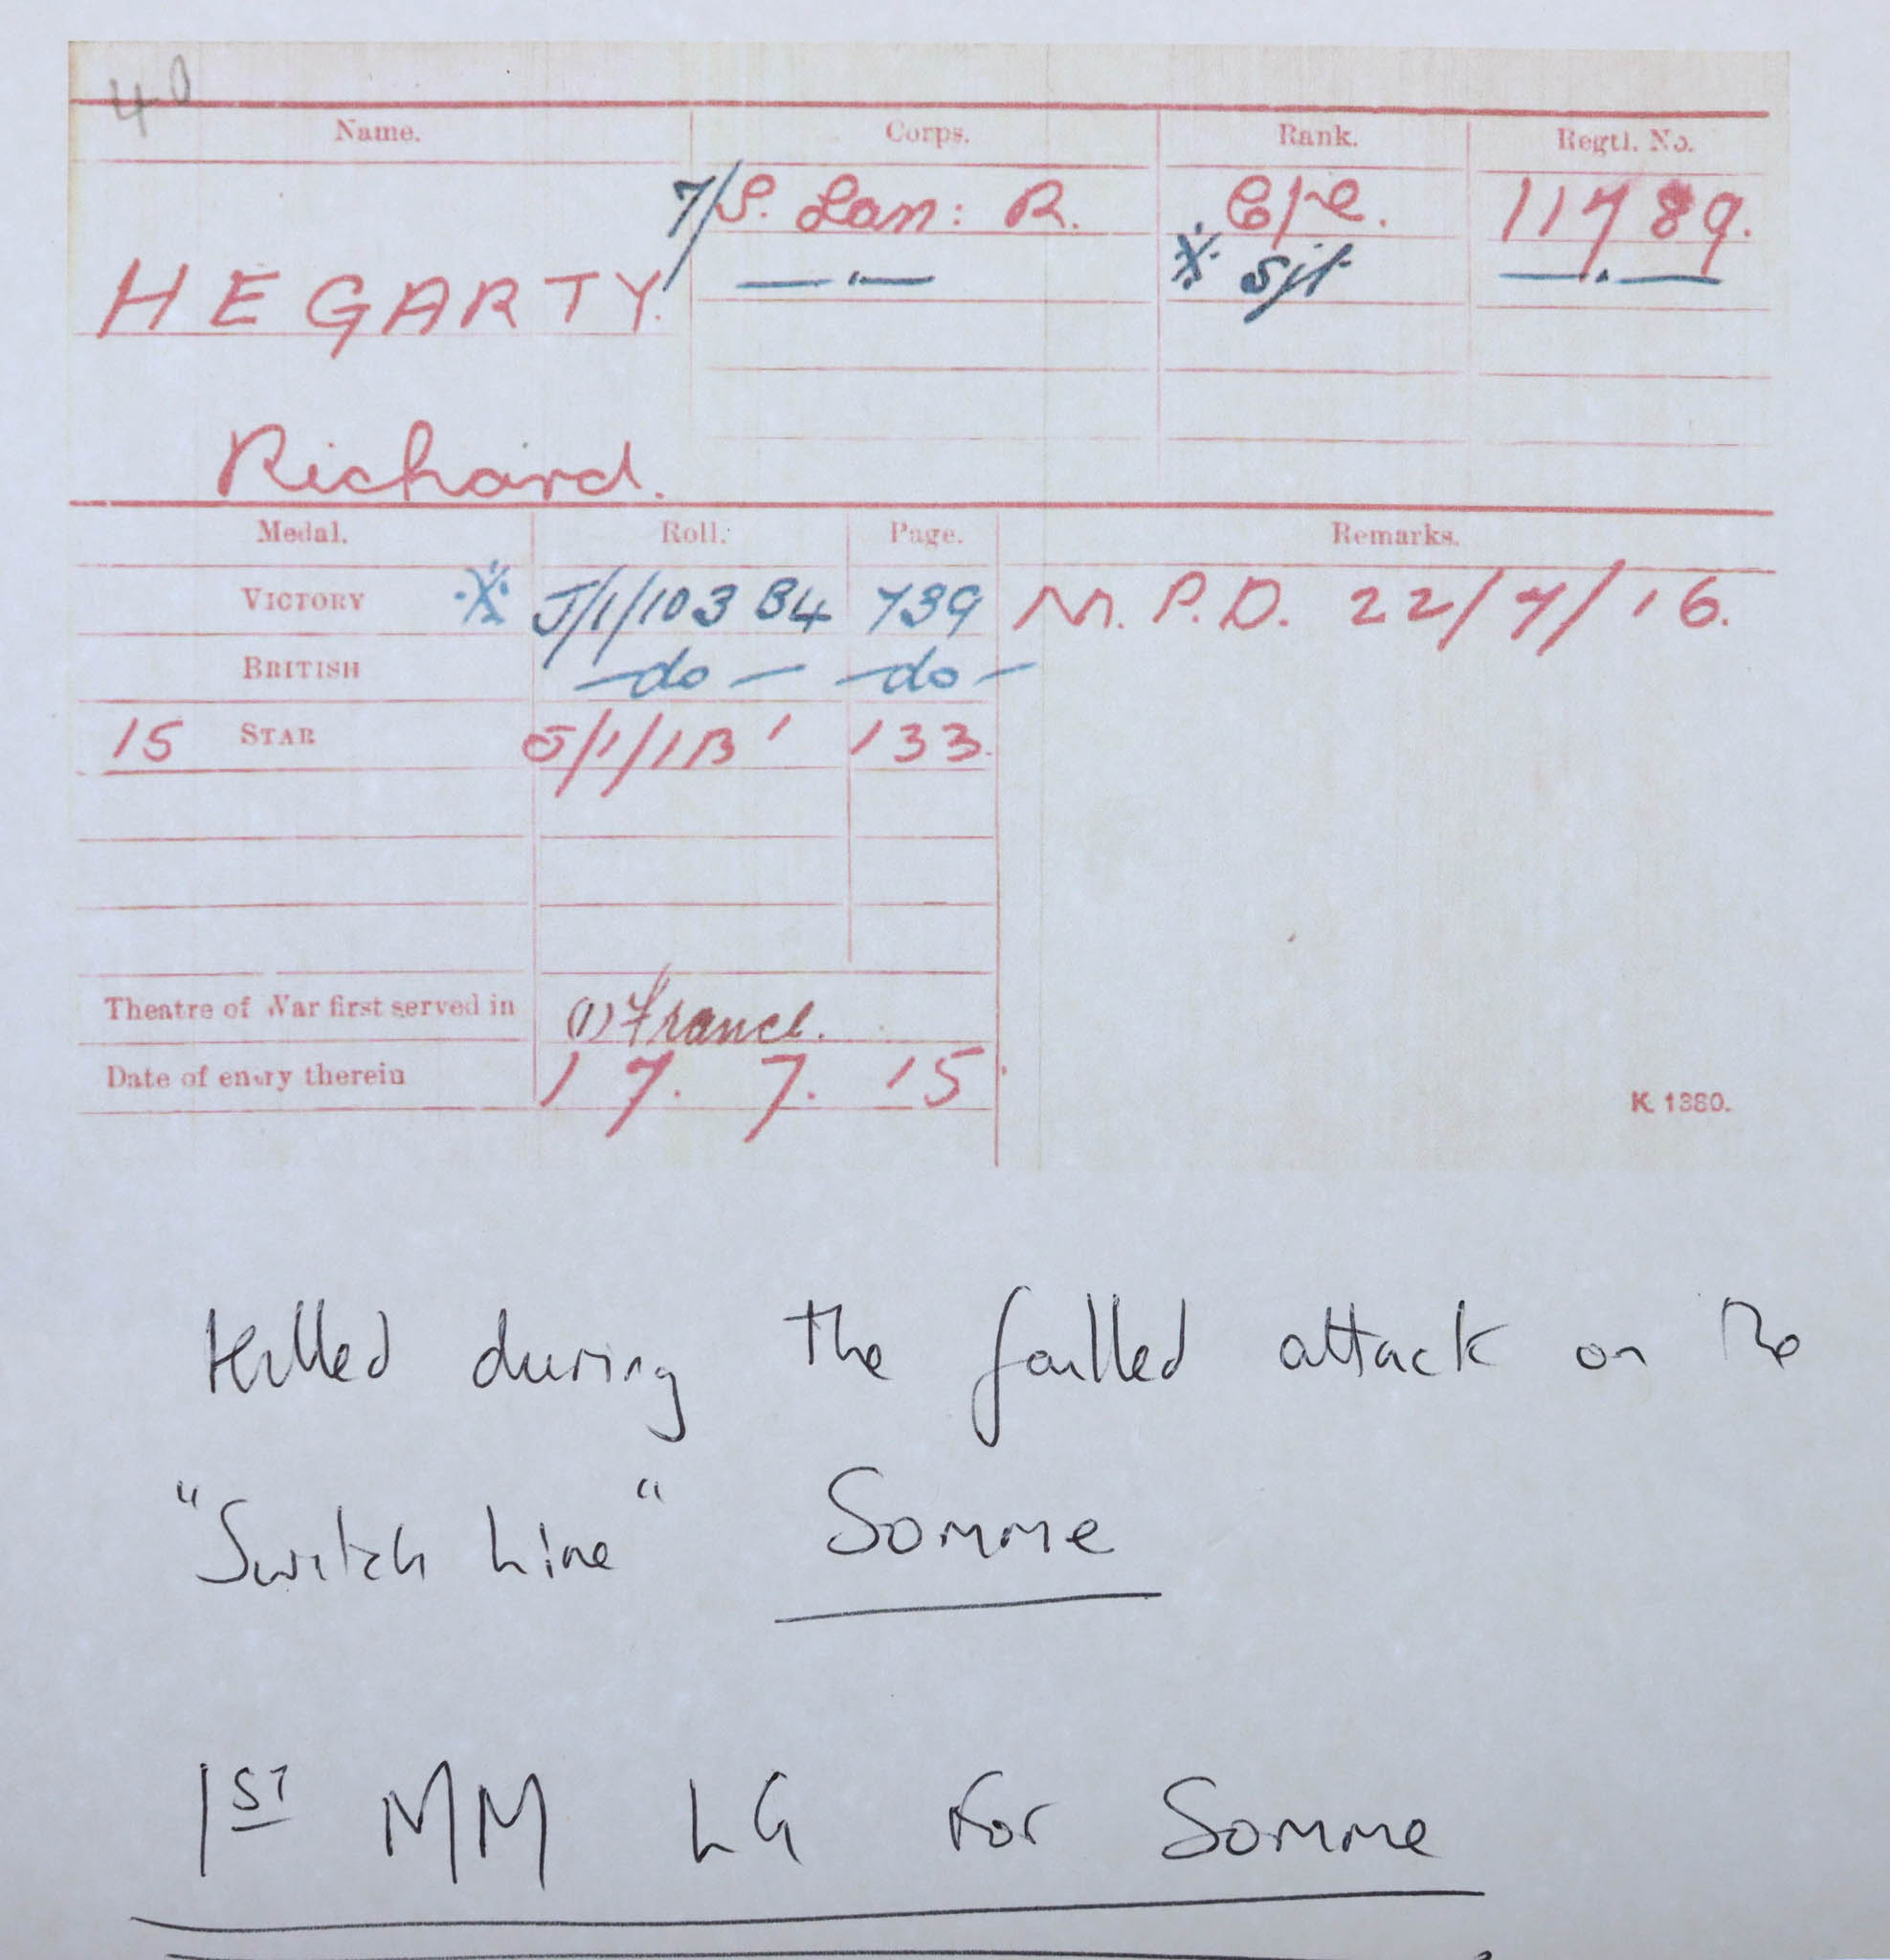 40
Name. Corps. Rank. Regtl. No.
7/S. Lan: R. Cpl. 11789.
HEGARTY. —"— ※ Sjt —"—
Richard.
Medal. Roll. Page. Remarks.
VICTORY ※ J/1/103 B4 739 M.P.D. 22/7/16.
BRITISH —do— —do—
15 STAR J/1/1B' 133.
Theatre of War first served in (1) France.
Date of entry therein 17. 7. 15
K. 1380.
Killed during the failled attack on the
"Switch Line" Somme
1ST MM LG For Somme